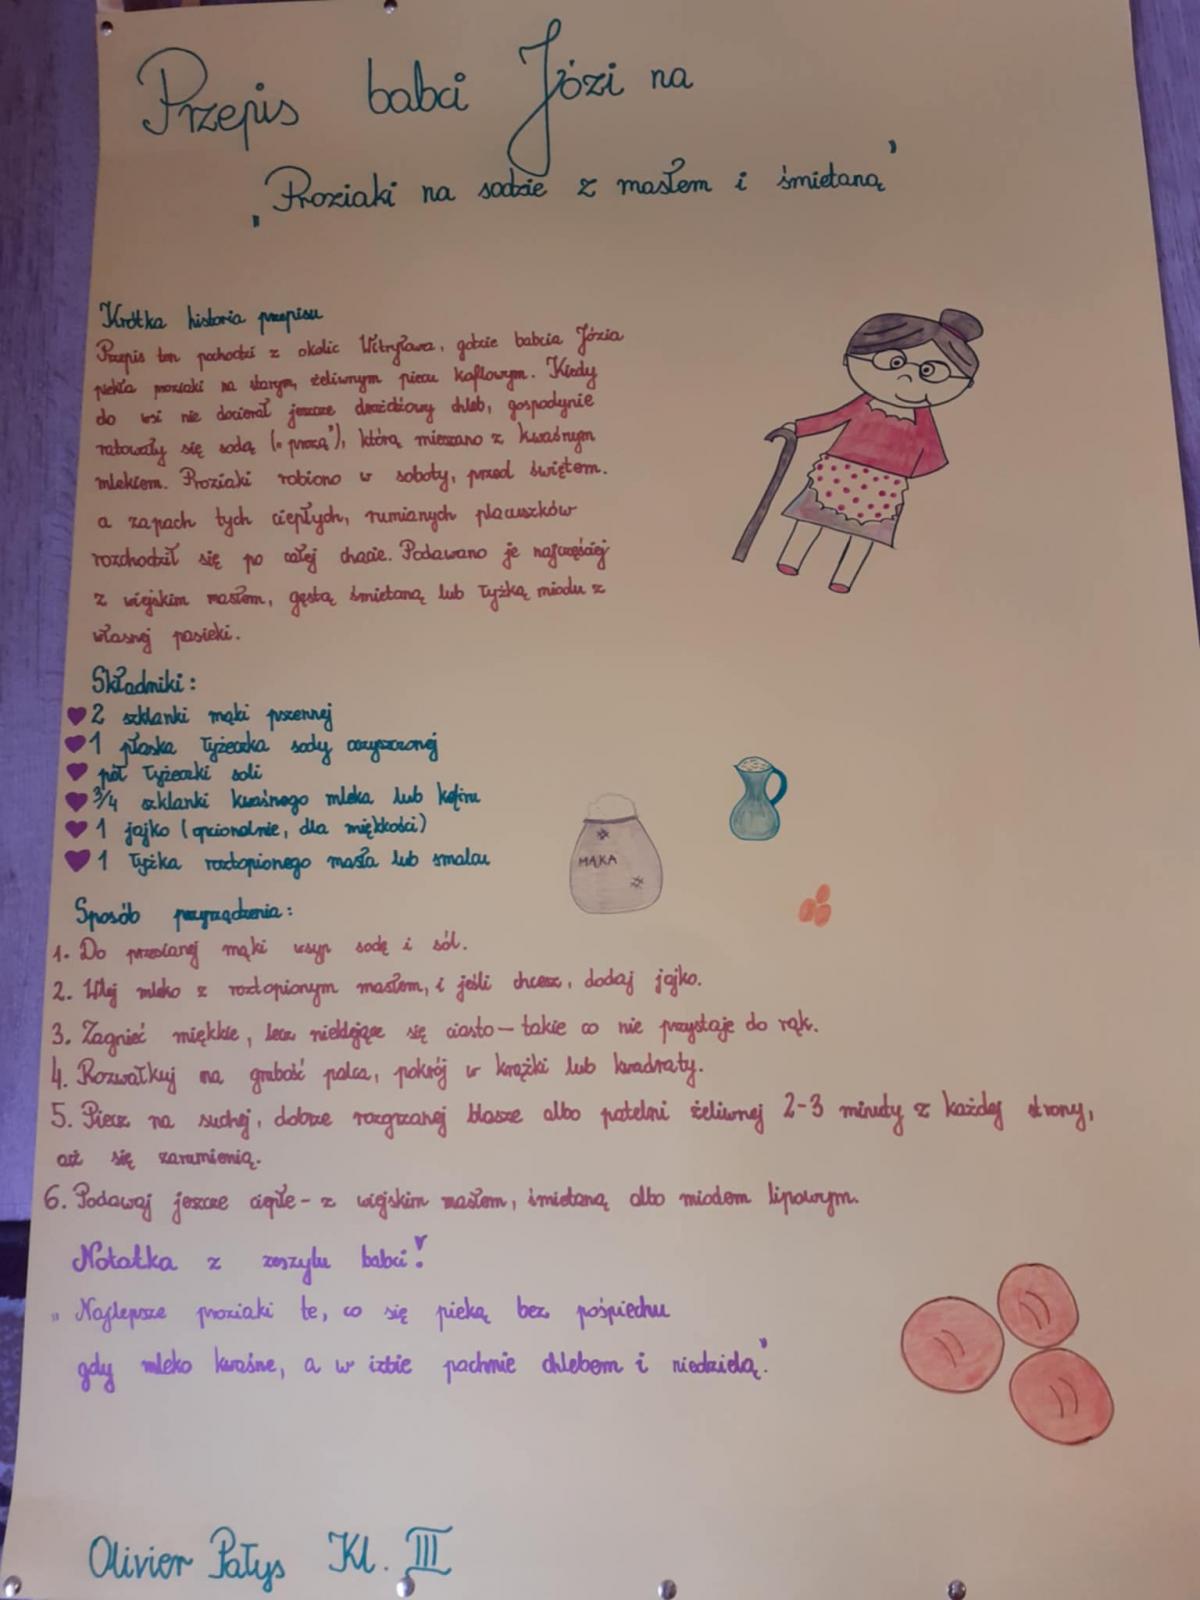 Przepis babci Józi na
„Proziaki na sodzie z masłem i śmietaną”
Krótka historia przepisu
Przepis ten pochodzi z okolic Witryłowa, gdzie babcia Józia
piekła proziaki na starym, żeliwnym piecu kaflowym. Kiedy
do wsi nie docierał jeszcze drożdżowy chleb, gospodynie
ratowały się sodą („prozą”), którą mieszano z kwaśnym
mlekiem. Proziaki robiono w soboty, przed świętem.
a zapach tych ciepłych, rumianych placuszków
rozchodził się po całej chacie. Podawano je najczęściej
z wiejskim masłem, gęstą śmietaną lub łyżką miodu z
własnej pasieki.
Składniki:
2 szklanki mąki pszennej
1 płaska łyżeczka sody oczyszczonej
pół łyżeczki soli
3/4 szklanki kwaśnego mleka lub kefiru
1 jajko (opcionalnie, dla miękkości)
1 łyżka roztopionego masła lub smalcu
MĄKA
Sposób przyrządzenia:
1. Do przesianej mąki wsyp sodę i sól.
2. Wlej mleko z roztopionym masłem, i jeśli chcesz, dodaj jajko.
3. Zagnieć miękkie, lecz nieklejące się ciasto – takie co nie przystaje do rąk.
4. Rozwałkuj na grubość palca, pokrój w krążki lub kwadraty.
5. Piecz na suchej, dobrze rozgrzanej blasze albo patelni żeliwnej 2-3 minuty z każdej strony,
aż się zarumienią.
6. Podawaj jeszcze ciepłe – z wiejskim masłem, śmietaną albo miodem lipowym.
Notatka z zeszytu babci!
„Najlepsze proziaki te, co się pieką bez pośpiechu
gdy mleko kwaśne, a w izbie pachnie chlebem i niedzielą.”
Olivier Patys Kl. III